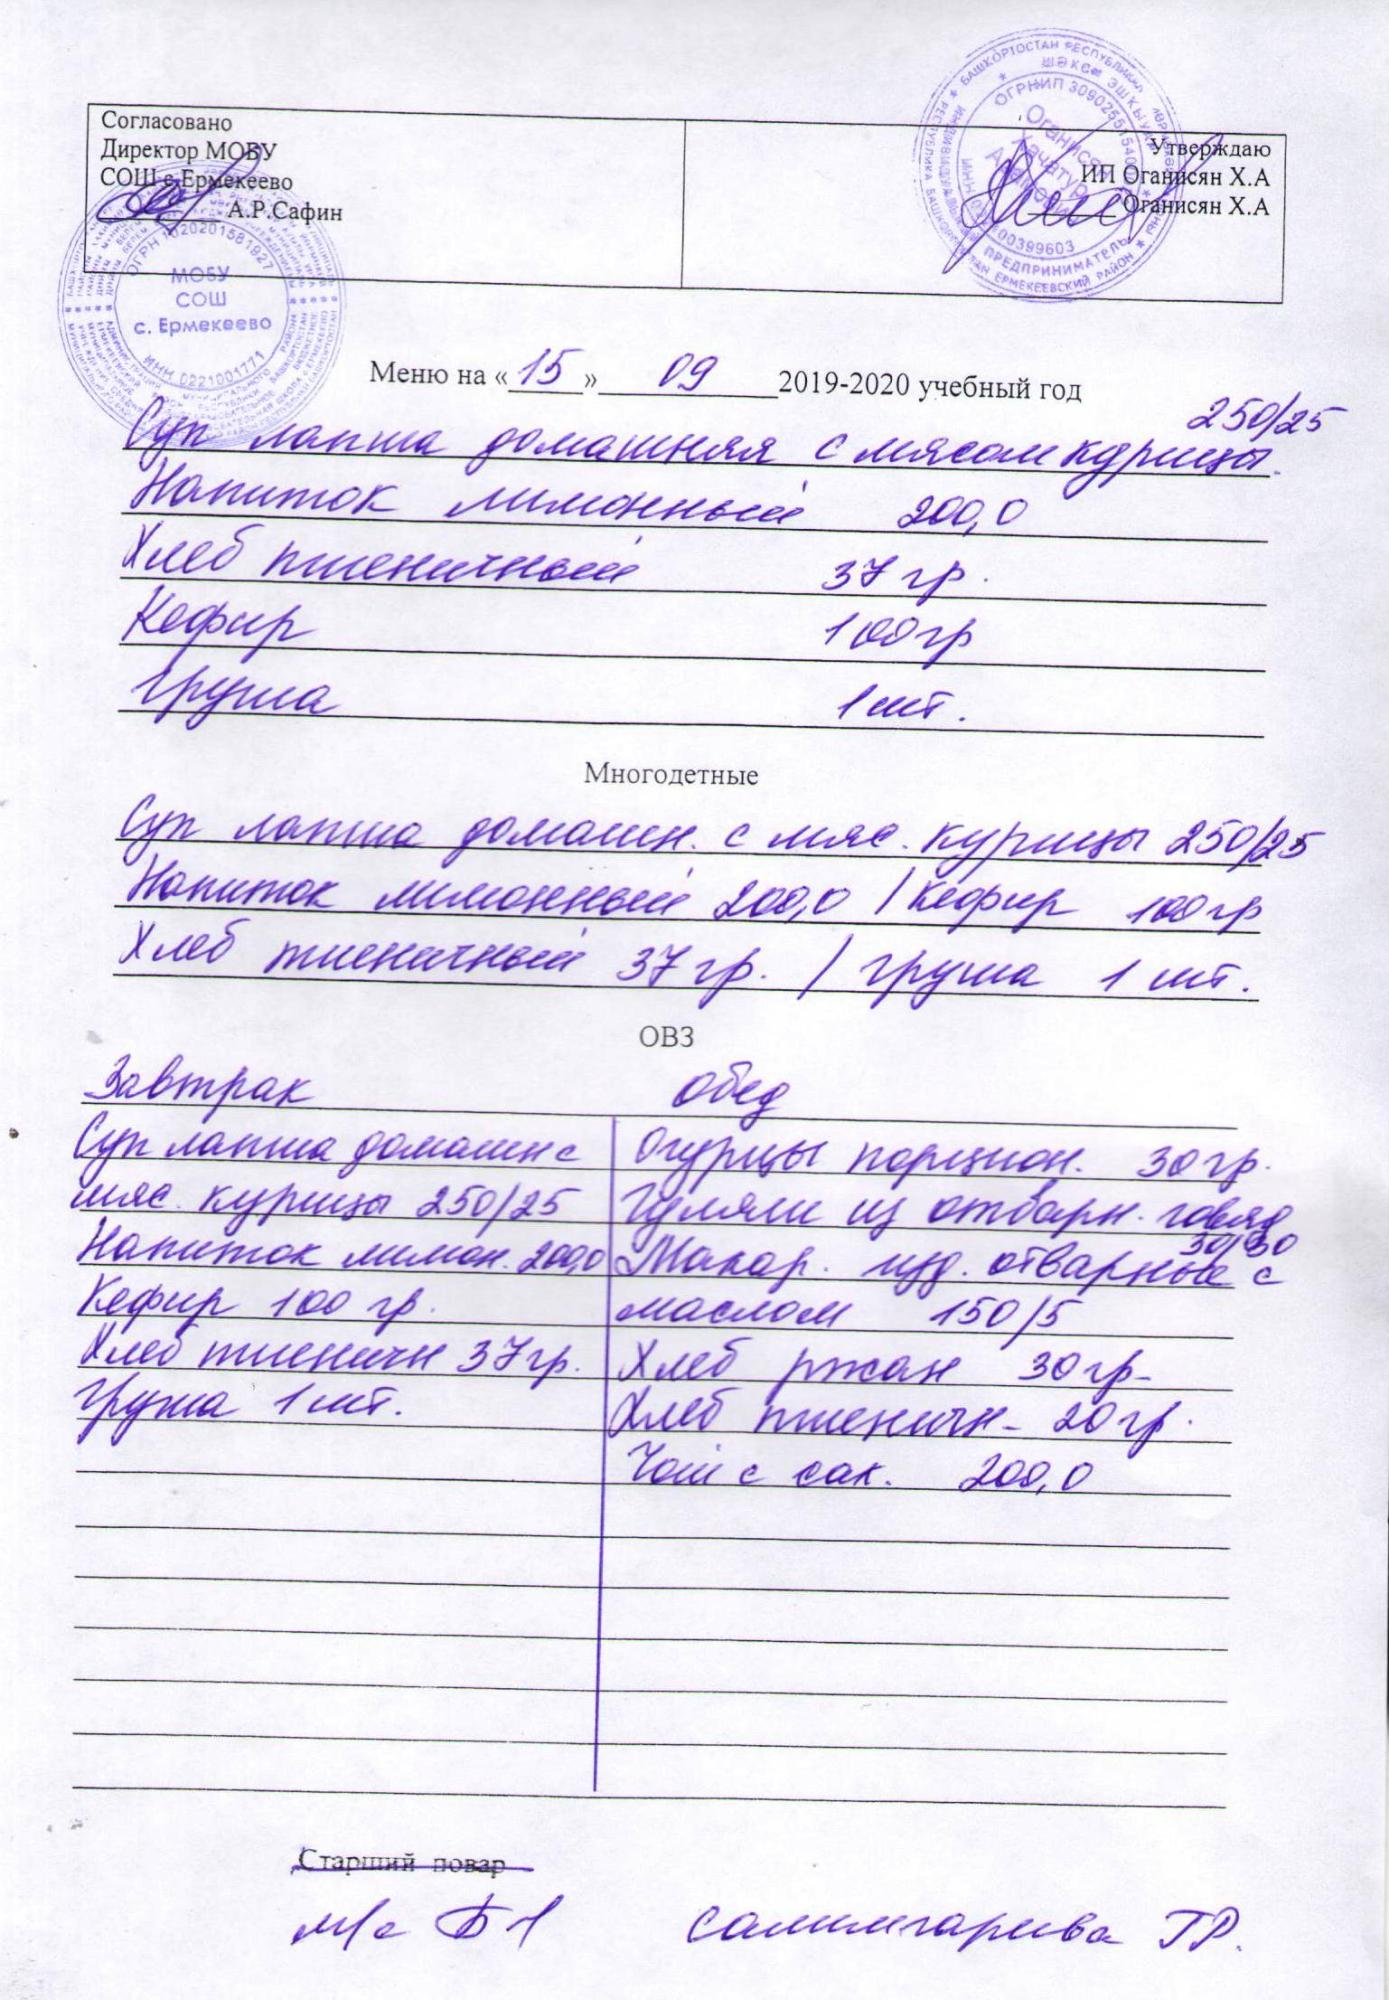 Согласовано
Директор МОБУ
СОШ с.Ермекеево
А.Р.Сафин
Утверждаю
ИП Оганисян Х.А
Оганисян Х.А
ОГРН 1020201581927
МОБУ
СОШ
с. Ермекеево
ИНН 0221001771
Меню на «15» 09 2019-2020 учебный год
250/25
Суп лапша домашняя с мясом курицы.
Напиток лимонный 200,0
Хлеб пшеничный 37 гр.
Кефир 100 гр
Груша 1 шт.
Многодетные
Суп лапша домашн. с мяс. курицы 250/25
Напиток лимонный 200,0 / Кефир 100 гр
Хлеб пшеничный 37 гр. / груша 1 шт.
ОВЗ
Завтрак обед
Суп лапша домашн с
мяс. курицы 250/25
Напиток лимон. 200,0
Кефир 100 гр.
Хлеб пшеничн 37 гр.
Груша 1 шт.
Огурцы порцион. 30 гр.
Гуляш из отварн. говяд
Макар. изд. отварные с
маслом 150/5
Хлеб ржан 30 гр-
Хлеб пшеничн- 20 гр.
Чай с сах. 200,0
Старший повар
м/с Салимгариева Г.Р.